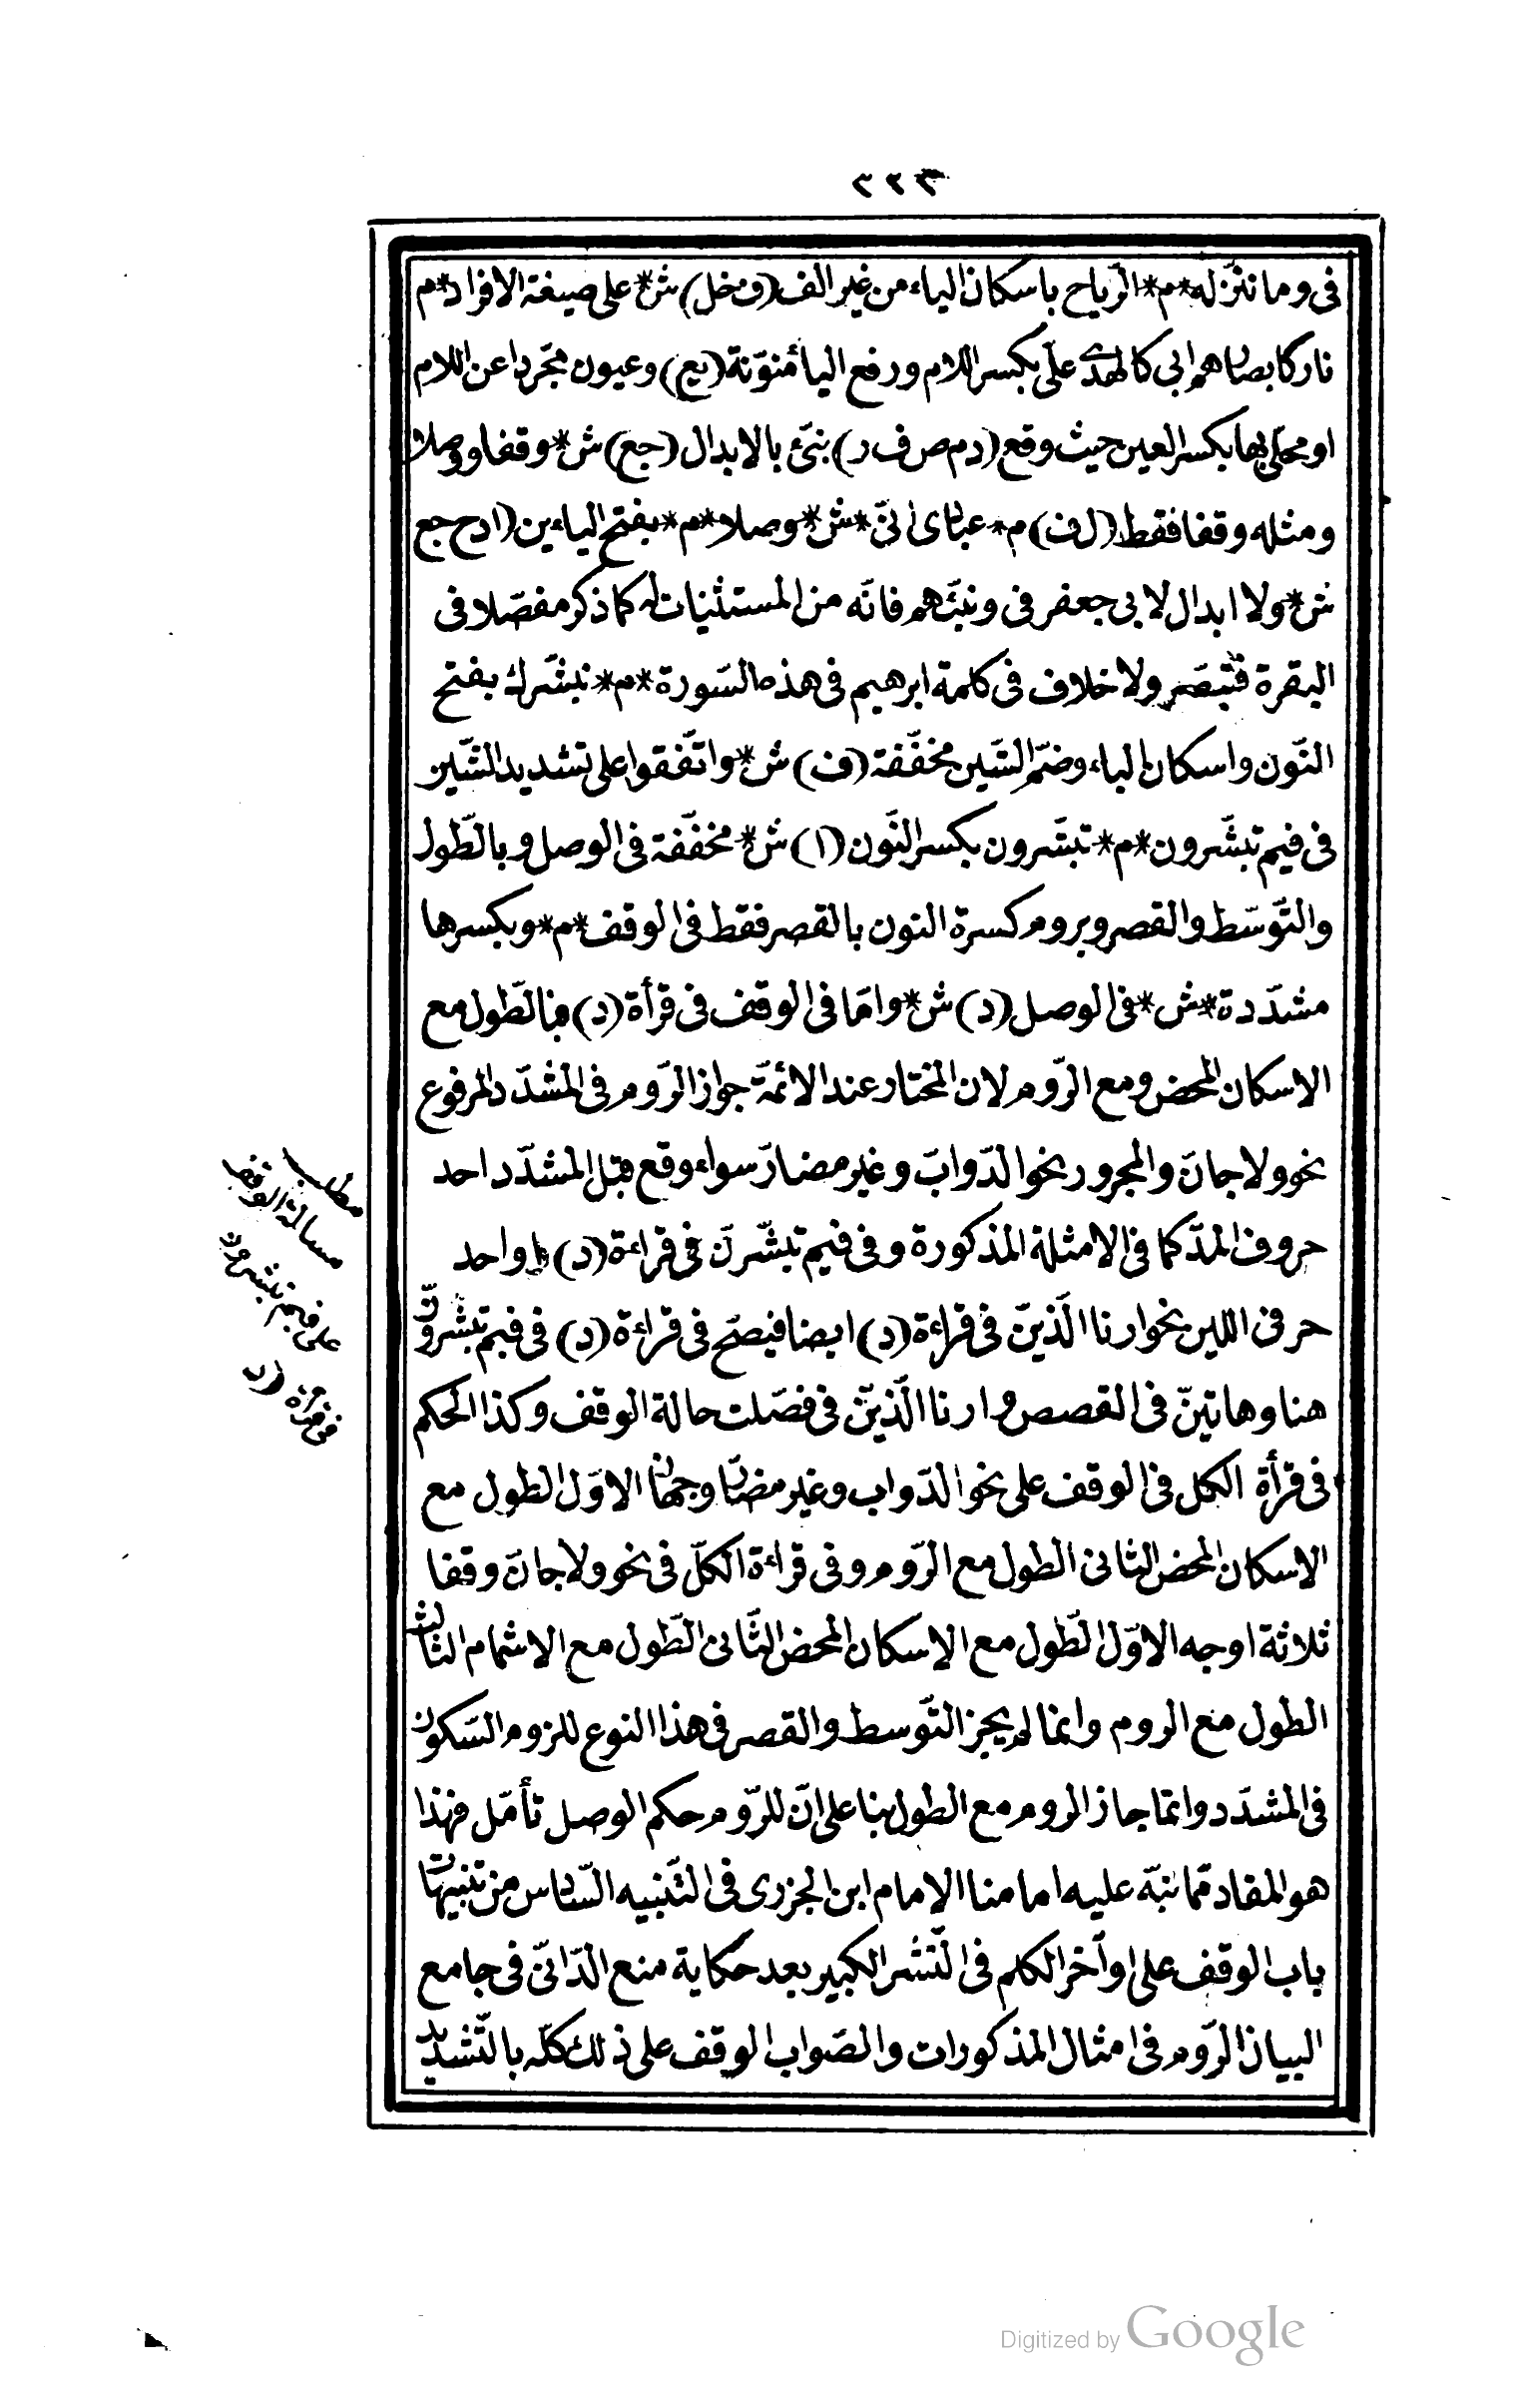 ٢٢٣
فى وما ننزله *م* الرّياح باسكان الياء من غير الف (ف خل) ش* على صيغة الافراد *م
نار كابصارهم ابى كالهدى علىّ بكسر اللام ورفع اليا منوّنة (يع) وعيون مجّردا عن اللام
او محلى بها بكسر العين حيث وقع (دم ص ف ر) نبّئ بالابدال (جع) ش* وقفا ووصلا
ومثله وقفا فقط (ل ف) م* عبادى انّى *ش* وصلا *م* بفتح الياءين (ا د ح جع
ش* ولا ابدال لابى جعفر فى ونبّئهم فانّه من المستثنيات له كما ذكر مفصّلا فى
البقرة فتبصّر ولا خلاف فى كلمة ابرهيم فى هذه السّورة *م* نبشّرك بفتح
النّون واسكان الباء وضمّ الشّين مخفّفة (ف) ش* واتّفقوا على تشديد الشّين
فى فبم تبشّرون *م* تبشّرون بكسر النّون (ا) ش* مخفّفة فى الوصل وبالطّول
والتّوسّط والقصر وبروم كسرة النون بالقصر فقط فى الوقف *م* وبكسرها
مشدّدة *ش* فى الوصل (د) ش* وامّا فى الوقف فى قرأة (د) فبالطّول مع
الاسكان المحض ومع الرّوم لان المختار عند الائمّة جواز الرّوم فى المشدّد المرفوع
نحو ولا جانّ والمجرور نحو الدّوابّ وغير مضارّ سواء وقع قبل المشدّد احد
حروف المدّ كما فى الامثلة المذكورة وفى فبم تبشّرنّ فى قراءة (د) او احد
حرفى اللين نحو ارنا الّذينّ فى قراءة (د) ايضا فيصحّ فى قراءة (د) فى فبم تبشّرونّ
هنا وهاتينّ فى القصص وارنا الّذينّ فى فصّلت حالة الوقف وكذا الحكم
فى قرأة الكل فى الوقف على نحو الدّواب وغير مضارّ وجهان الاوّل الطول مع
الاسكان المحض الثانى الطول مع الرّوم وفى قراءة الكلّ فى نحو ولا جانّ وقفا
ثلاثة اوجه الاوّل الطّول مع الاسكان المحض الثّانى الطّول مع الاشمام الثالث
الطول مع الروم وانما لم يجز التّوسط والقصر فى هذا النوع للزوم السّكون
فى المشدّد وانّما جاز الروم مع الطول بنا على انّ للرّوم حكم الوصل تأمّل فهذا
هو المفاد ممّا نبّه عليه امامنا الامام ابن الجزرى فى التّنبيه السّادس من تنبيهات
باب الوقف على اوآخر الكلم فى النّشر الكبير بعد حكاية منع الدّانىّ فى جامع
البيان الرّوم فى امثال المذكورات والصّواب الوقف على ذلك كلّه بالتّشديد
مطلب
مسالة الوقف
على فبم تبشرون
فى قراءة (د)
Digitized by Google